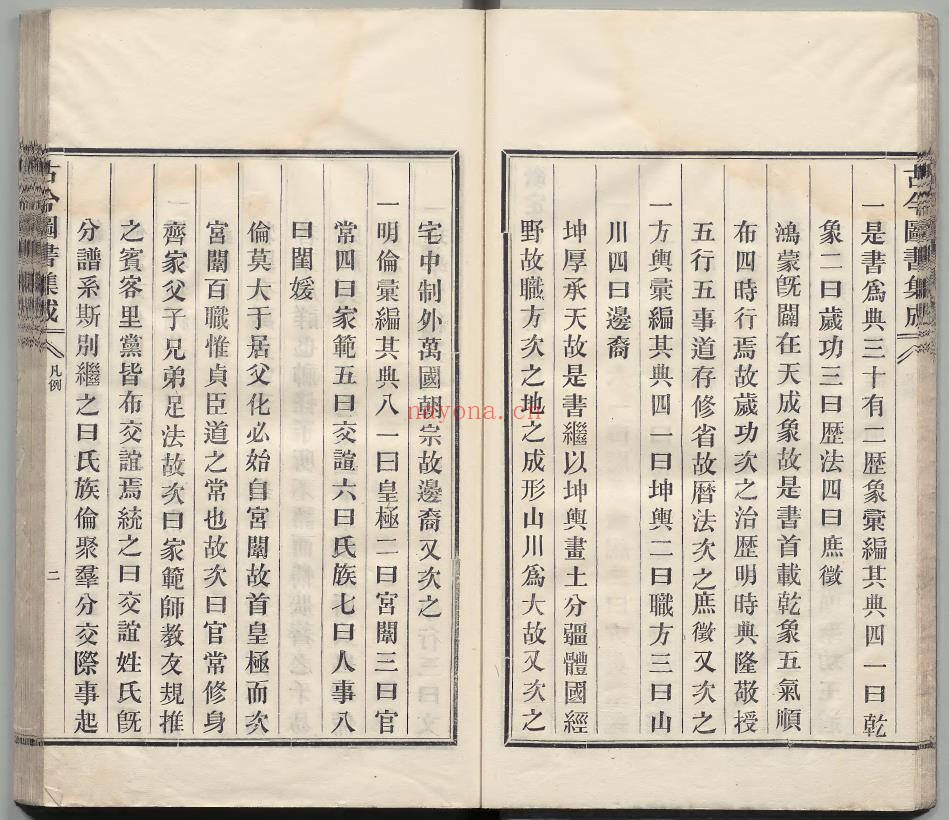 古今圖書集成
一是書爲典三十有二歷象彙編其典四一曰乾
象二曰歲功三曰歷法四曰庶徵
鴻蒙旣闢在天成象故是書首載乾象五氣順
布四時行焉故歲功次之治歷明時典隆敬授
五行五事道存修省故曆法次之庶徵又次之
一方輿彙編其典四一曰坤輿二曰職方三曰山
川四曰邊裔
坤厚承天故是書繼以坤輿畫土分疆體國經
野故職方次之地之成形山川爲大故又次之
宅中制外萬國朝宗故邊裔又次之
一明倫彙編其典八一曰皇極二曰宮闈三曰官
常四曰家範五曰交誼六曰氏族七曰人事八
曰閨媛
倫莫大于居父化必始自宮闈故首皇極而次
宮闈百職惟貞臣道之常也故次曰官常修身
齊家父子兄弟足法故次曰家範師教友規推
之賓客里黨皆布交誼焉統之曰交誼姓氏旣
分譜系斯別繼之曰氏族倫聚羣分交際事起
古今圖書集成
凡例
二
nayona.cn